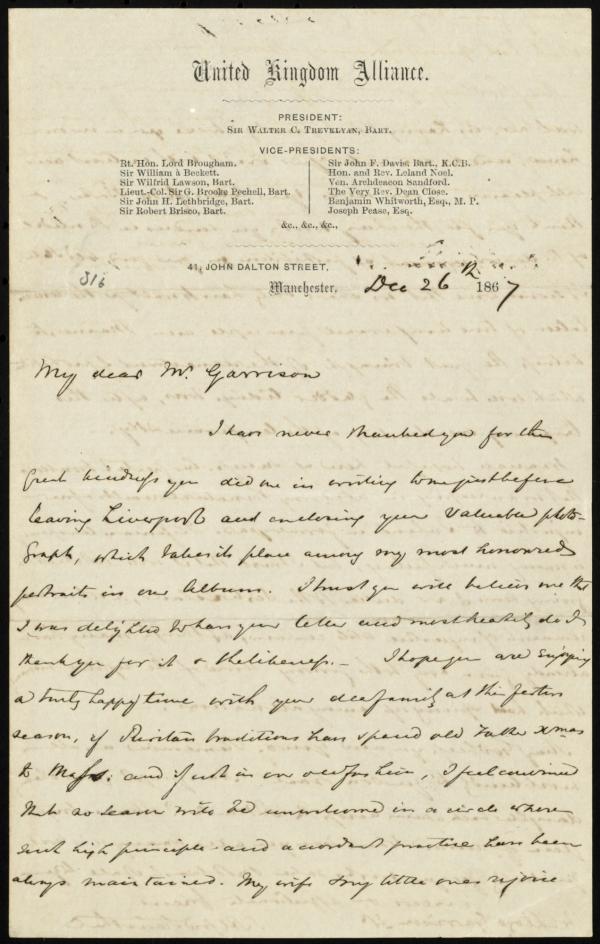 United Kingdom Alliance.
PRESIDENT:
SIR WALTER C. TREVELYAN, BART.
VICE-PRESIDENTS:
Rt. Hon. Lord Brougham.
Sir William à Beckett.
Sir Wilfrid Lawson, Bart.
Lieut.-Col. Sir G. Brooke Pechell, Bart.
Sir John H. Lethbridge, Bart.
Sir Robert Brisco, Bart.
Sir John F. Davis, Bart., K.C.B.
Hon. and Rev. Leland Noel.
Ven. Archdeacon Sandford.
The Very Rev. Dean Close.
Benjamin Whitworth, Esq., M. P.
Joseph Pease, Esq.
&c., &c., &c.,
41, JOHN DALTON STREET,
Manchester. Dec 26th 1867
My dear Mr. Garrison
I have never thanked you for the
great kindness you did me in writing to me just before
leaving Liverpool and enclosing your valuable photo-
graph, which takes its place among my most honoured
portraits in our Album. I trust you will believe me that
I was delighted to have your letter and most heartily do I
thank you for it & the likeness. – I hope you are enjoying
a truly happy time with your dear family at this festive
season, if Puritan traditions have spared old Father Xmas
to Mass: and if not in our old fashion, I feel convinced
that no season will be unwelcomed in a circle where
such high principle and accordant practice have been
always maintained. My wife & my little ones rejoice